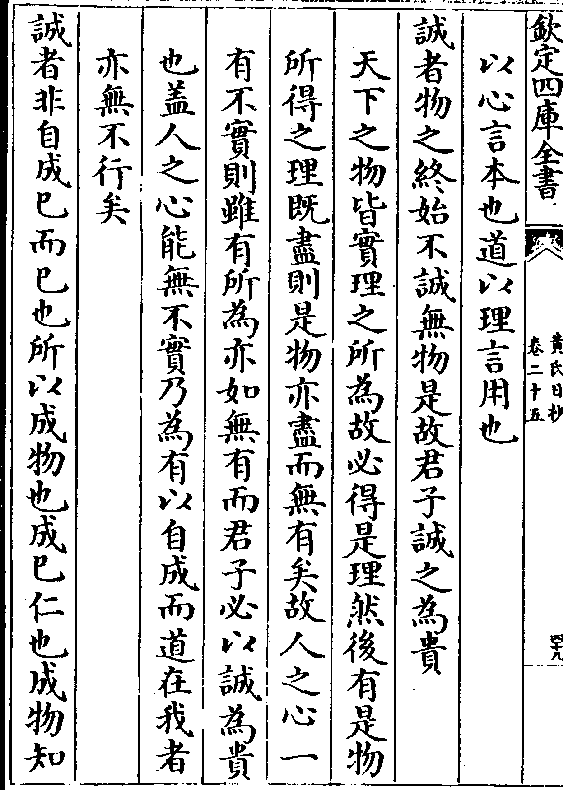 欽定四庫全書
黃氏日抄
卷二十五
四十九
以心言本也道以理言用也
誠者物之終始不誠無物是故君子誠之為貴
天下之物皆實理之所為故必得是理然後有是物
所得之理既盡則是物亦盡而無有矣故人之心一
有不實則雖有所為亦如無有而君子必以誠為貴
也盖人之心能無不實乃為有以自成而道在我者
亦無不行矣
誠者非自成巳而巳也所以成物也成巳仁也成物知